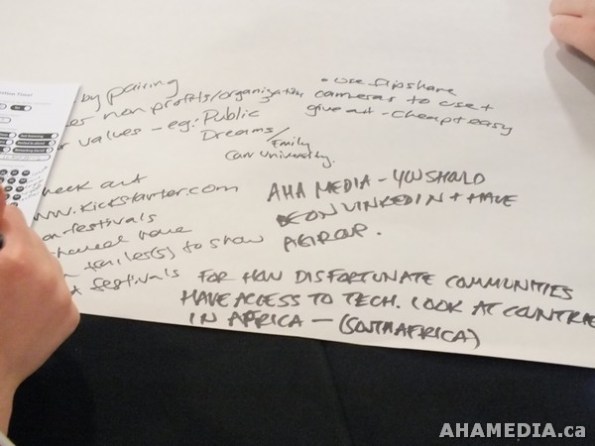 by pairing
non profits/organization
values - eg: Public
Dreams/Emily
Carr University.
• use flipshare
cameras to use +
give out - cheap + easy
check out
www.kickstarter.com
festivals
to show
festivals
AHA MEDIA - YOU SHOULD
BE ON LINKEDIN + HAVE
A GROUP.
FOR HOW DISFORTUNATE COMMUNITIES
HAVE ACCESS TO TECH. LOOK AT COUNTRIE
IN AFRICA - (SOUTH AFRICA)
AHAMEDIA.ca